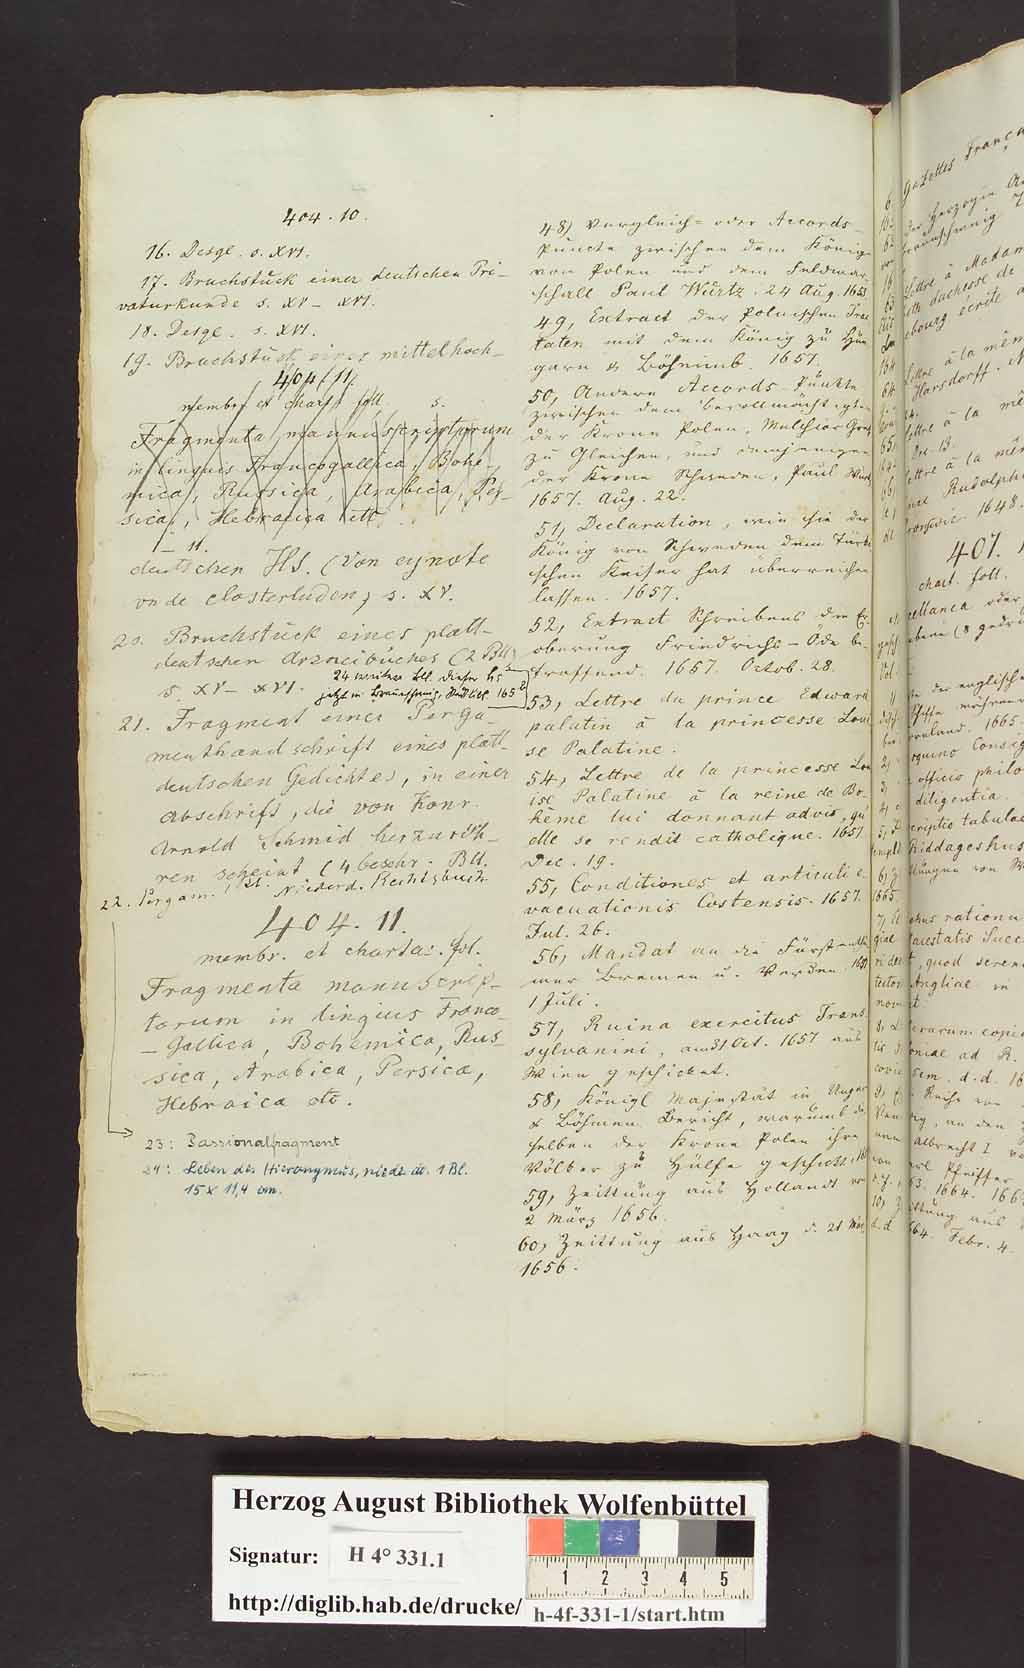 404.10.
16. Desgl. s. XVI.
17. Bruchstück einer deutschen Pri-
vaturkunde s. XV – XVI.
18. Desgl. s. XVI.
19. Bruchstück eines mittelhoch-
404/11.
membr. et chart. foll. s.
Fragmenta manuscriptorum
in linguis Francogallica, Bohe-
mica, Russica, Arabica, Per-
sica, Hebraica etc.
1–11.
deutschen HS. (Von eynote
vnde closterluden, s. XV.
20. Bruchstück eines platt-
deutschen Arzneibuches (2 Bll)
s. XV – XVI.
24 weitere Bll. dieser Hs
jetzt in Braunschweig, Stadtbibl. 165
21. Fragment einer Perga-
menthandschrift eines platt-
deutschen Gedichtes, in einer
Abschrift, die von Konr.
Arnold Schmid herzurüh-
ren scheint (4 beschr. Bll.
22. Pergam. 1 Bl. Niederd. Rechtsbuch
404.11.
membr. et charta: fol.
Fragmenta manuscrip-
torum in linguis Franco
– Gallica, Bohemica, Rus-
sica, Arabica, Persica,
Hebraica etc.
23: Passionalfragment
24: Leben des Hieronymus, niederdt. 1 Bl.
15 x 11,4 cm.
48, Vergleich= oder Accords-
Puncte zwischen dem König
von Polen und dem Feldmar
schall Paul Würtz. 24 Aug. 1653
49, Extract der Polnischen Trac
taten mit dem König zu Hun
garn & Böheimb. 1657.
50, Andere Accords-Punkte
zwischen dem bevollmächtigten
der Krone Polen, Melchior Graf
zu Gleichen, und demjenigen
der Krone Schweden, Paul Würtz
1657. Aug. 22.
51, Declaration, wie sie der
König von Schweden dem Türki
schen Keiser hat überreichen
lassen. 1657.
52, Extract Schreibens die Er-
oberung Friedrichs-Öde be-
treffend. 1657. Octob. 28.
53, Lettre du prince Edward
palatin à la princesse Loui
se Palatine.
54, Lettre de la princesse Lou
ise Palatine à la reine de Bo-
hême lui donnant advis, qu'
elle se rendit catholique. 1657
Dec. 19.
55, Conditiones et articuli e-
vacuationis Costensis. 1657.
Jul. 26.
56, Mandat an die Fürstenthü
mer Bremen u. Verden, 1657
1 Juli.
57, Ruina exercitus Trans
sylvanini, am 31 Oct. 1657 aus
Wien geschicket.
58, Königl Majestät in Ungar
& Böhmen Bericht, warumb die
selben der Krone Polen ihre
Völker zu Hülfe geschickt. 16
59, Zeittung aus Hollandt vo
2 März 1656.
60, Zeittung aus Haag d. 21 März
1656.
Gazettes França
der Herzogin A
Braunschweig
Lettre à Madam
duchesse de
écrite
Lettre à la mêm
Harsdorff.
Lettre à la mê
Dec. 13.
Lettre à la mêm
Rudolph
1648.
407.
chart. foll.
oder
der englische
1665.
officio philo
diligentia.
tabulae
Riddageshus
von
1665.
rationu
maestatis Succ
quod seren
Angliae in
copi
ad R.
d.d. 16
an den
Albrecht I
Pfeiffer
1664. 166
aus
Febr. 4.
Herzog August Bibliothek Wolfenbüttel
Signatur: H 4° 331.1
1 2 3 4 5
http://diglib.hab.de/drucke/ h-4f-331-1/start.htm